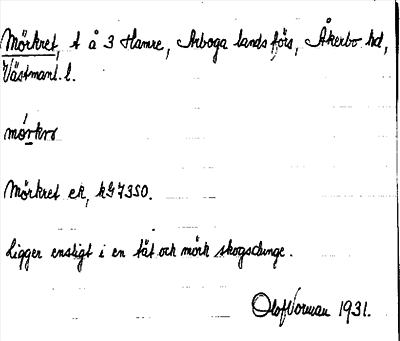 Mörkret, t å 3 Hamre, Arboga landsförs, Åkerbo hd,
Västmanl. l.
mörkrə
Mörkret ek, kG 7350.
Ligger ensligt i en tät och mörk skogsdunge.
Olof Norman 1931.